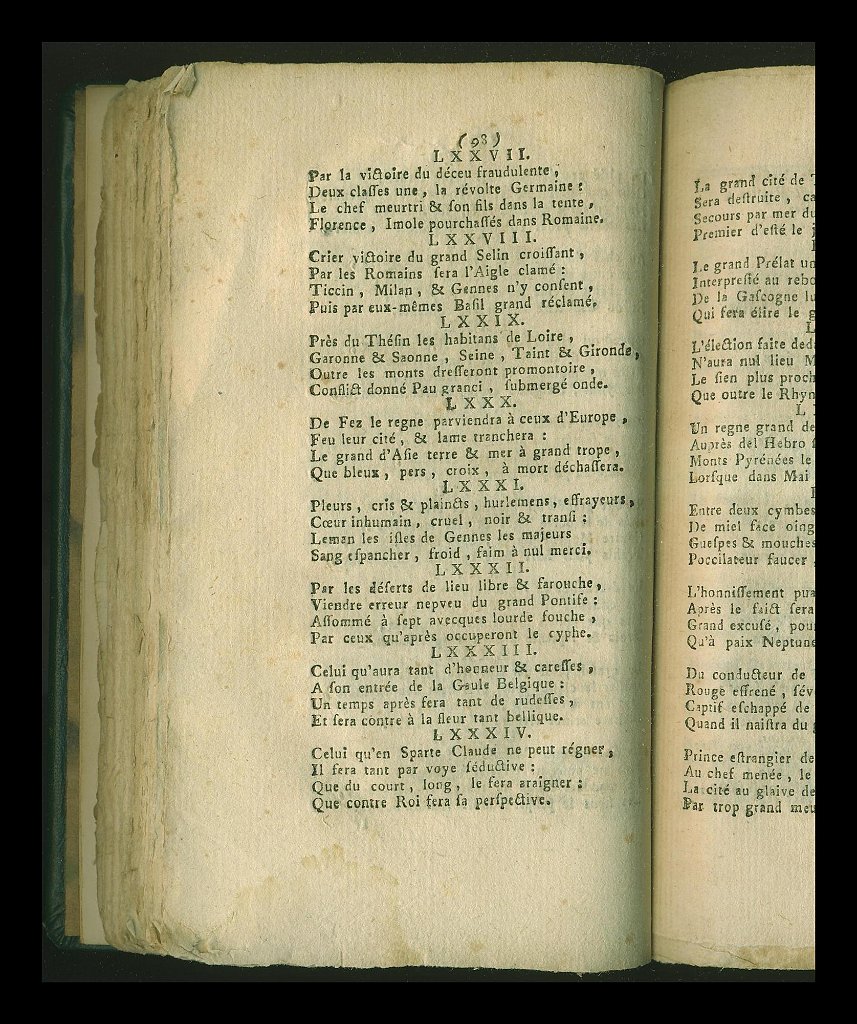 (98)
LXXVII.
Par la victoire du déceu fraudulente,
Deux claſſes une, la révolte Germaine :
Le chef meurtri & ſon fils dans la tente,
Florence, Imole pourchaſſés dans Romaine.
LXXVIII.
Crier victoire du grand Selin croiſſant,
Par les Romains ſera l'Aigle clamé :
Ticcin, Milan, & Gennes n'y conſent,
Puis par eux-mêmes Baſil grand réclamé.
LXXIX.
Près du Théſin les habitans de Loire,
Garonne & Saonne, Seine, Taint & Gironde,
Outre les monts dreſſeront promontoire,
Conflict donné Pau granci, ſubmergé onde.
LXXX.
De Fez le regne parviendra à ceux d'Europe,
Feu leur cité, & lame tranchera :
Le grand d'Aſie terre & mer à grand trope,
Que bleux, pers, croix, à mort déchaſſera.
LXXXI.
Pleurs, cris & plaincts, hurlemens, effrayeurs,
Cœur inhumain, cruel, noir & tranſi :
Leman les iſles de Gennes les majeurs
Sang eſpancher, froid, faim à nul merci.
LXXXII.
Par les déſerts de lieu libre & farouche,
Viendre erreur nepveu du grand Pontife :
Aſſommé à ſept avecques lourde fouche,
Par ceux qu'après occuperont le cyphe.
LXXXIII.
Celui qu'aura tant d'honneur & careſſes,
A ſon entrée de la Gaule Belgique :
Un temps après fera tant de rudeſſes,
Et ſera contre à la fleur tant bellique.
LXXXIV.
Celui qu'en Sparte Claude ne peut régner,
Il fera tant par voye ſéductive :
Que du court, long, le fera araigner :
Que contre Roi fera ſa perſpective.
La grand cité de
Sera deſtruite, ca
Secours par mer du
Premier d'eſté le
Le grand Prélat un
Interpreſté au rebo
De la Gaſcogne lu
Qui fera élire le g
L'élection faite ded
N'aura nul lieu M
Le ſien plus proch
Que outre le Rhyn
Un regne grand de
Auprès del Hebro
Monts Pyrénées le
Lorſque dans Mai
Entre deux cymbes
De miel face oing
Gueſpes & mouches
Poccilateur faucer,
L'honniſſement pua
Après le faict ſera
Grand excuſé, pour
Qu'à paix Neptune
Du conducteur de
Rouge effrené, ſév
Captif eſchappé de
Quand il naiſtra du
Prince eſtrangier de
Au chef menée, le
La cité au glaive de
Par trop grand meu